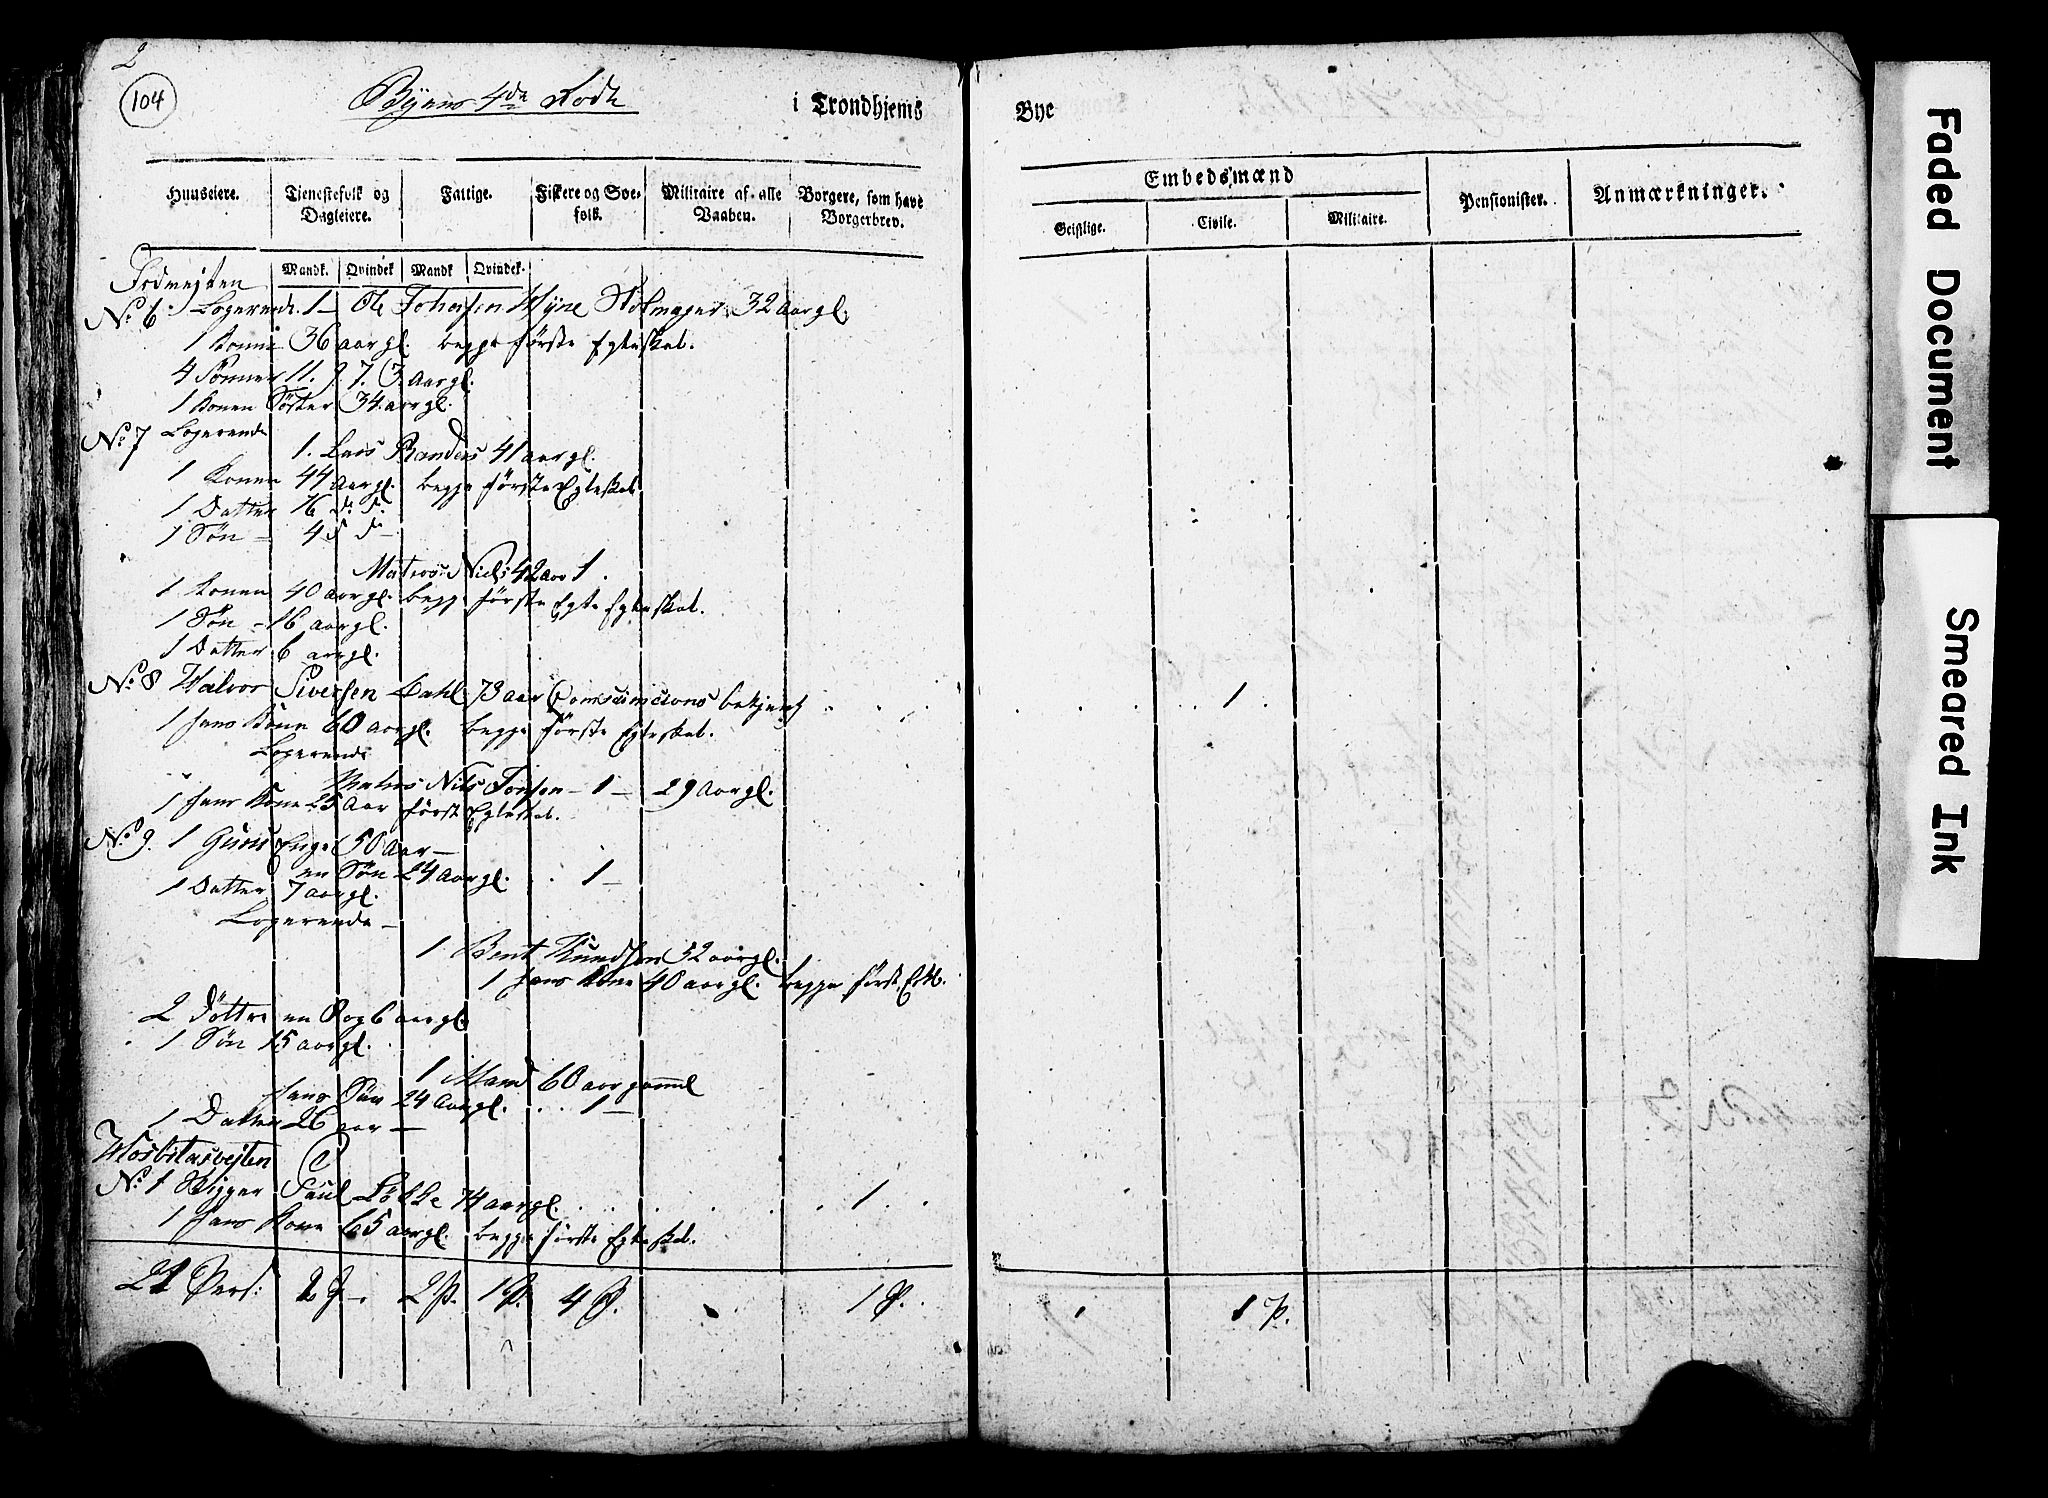 2
104
Byens 4de Rode
i Trondhjems
Bye
Huuseiere.
Tjenestefolk og Dagleiere.
Fattige.
Fiskere og Søefolk.
Militaire af alle Vaaben.
Borgere, som have Borgerbrev.
Embedsmænd
Geistlige.
Civile.
Militaire.
Pensionister.
Anmærkninger.
Mandk. Qvindek Mandk Qvindek.
No 6 Logerende 1 – Ole Johansen 32 aar gl.
1 Konne 36 aar gl. begge første Egteskab.
4 Sønner 11. 9. 7. 3 aar gl.
1 Konen Søster 34. aar gl.
No 7 Logerende
1. Lars Randers 41 aar gl.
1 Konen 44 aar gl. begge første Egteskab
1 Datter 16 do do.
1 Søn – 4 d do –
Matros Niels 42 aar 1.
1 Konen 40 aar gl. begge første Egte Egteskab.
1 Søn – 16 aar gl.
1 Datter 6 aar gl.
No 8 Halvor Siversen Dahl 73 aar Consumcions betjent . . . . . . . 1 .
1 hans Kone 60 aar gl. begge første Egteskab.
Logerende
Matros Nils Jonsen – 1 – 29 aar gl.
1 hans Kone 25 Aar første Egteskab.
No 9. 1 Enge 50 Aar –
en Søn 24 aar gl. . . 1 –
1 Datter 7 aar gl.
Logerende –
1 Bent Knudsen 52 aar gl.
1 hans Kone 40 aar gl. begge først. Eskb.
2 Døttre en 8 og 6 aar gl.
1 Søn 15 aar gl.
1 Mand 60 aar gammel
hans Søn 24 aar gl. . . . 1 –
1 Datter 26 aar –
No 1 Paul Løkke 74 aar gl. . . . . . 1 . .
1 hans Kone 65 aar gl. begge første Egteskab.
21 Pers: 2 P. 2 P. 1 P. 4 P. 1 P. 1 P.
Faded Document
Smeared Ink